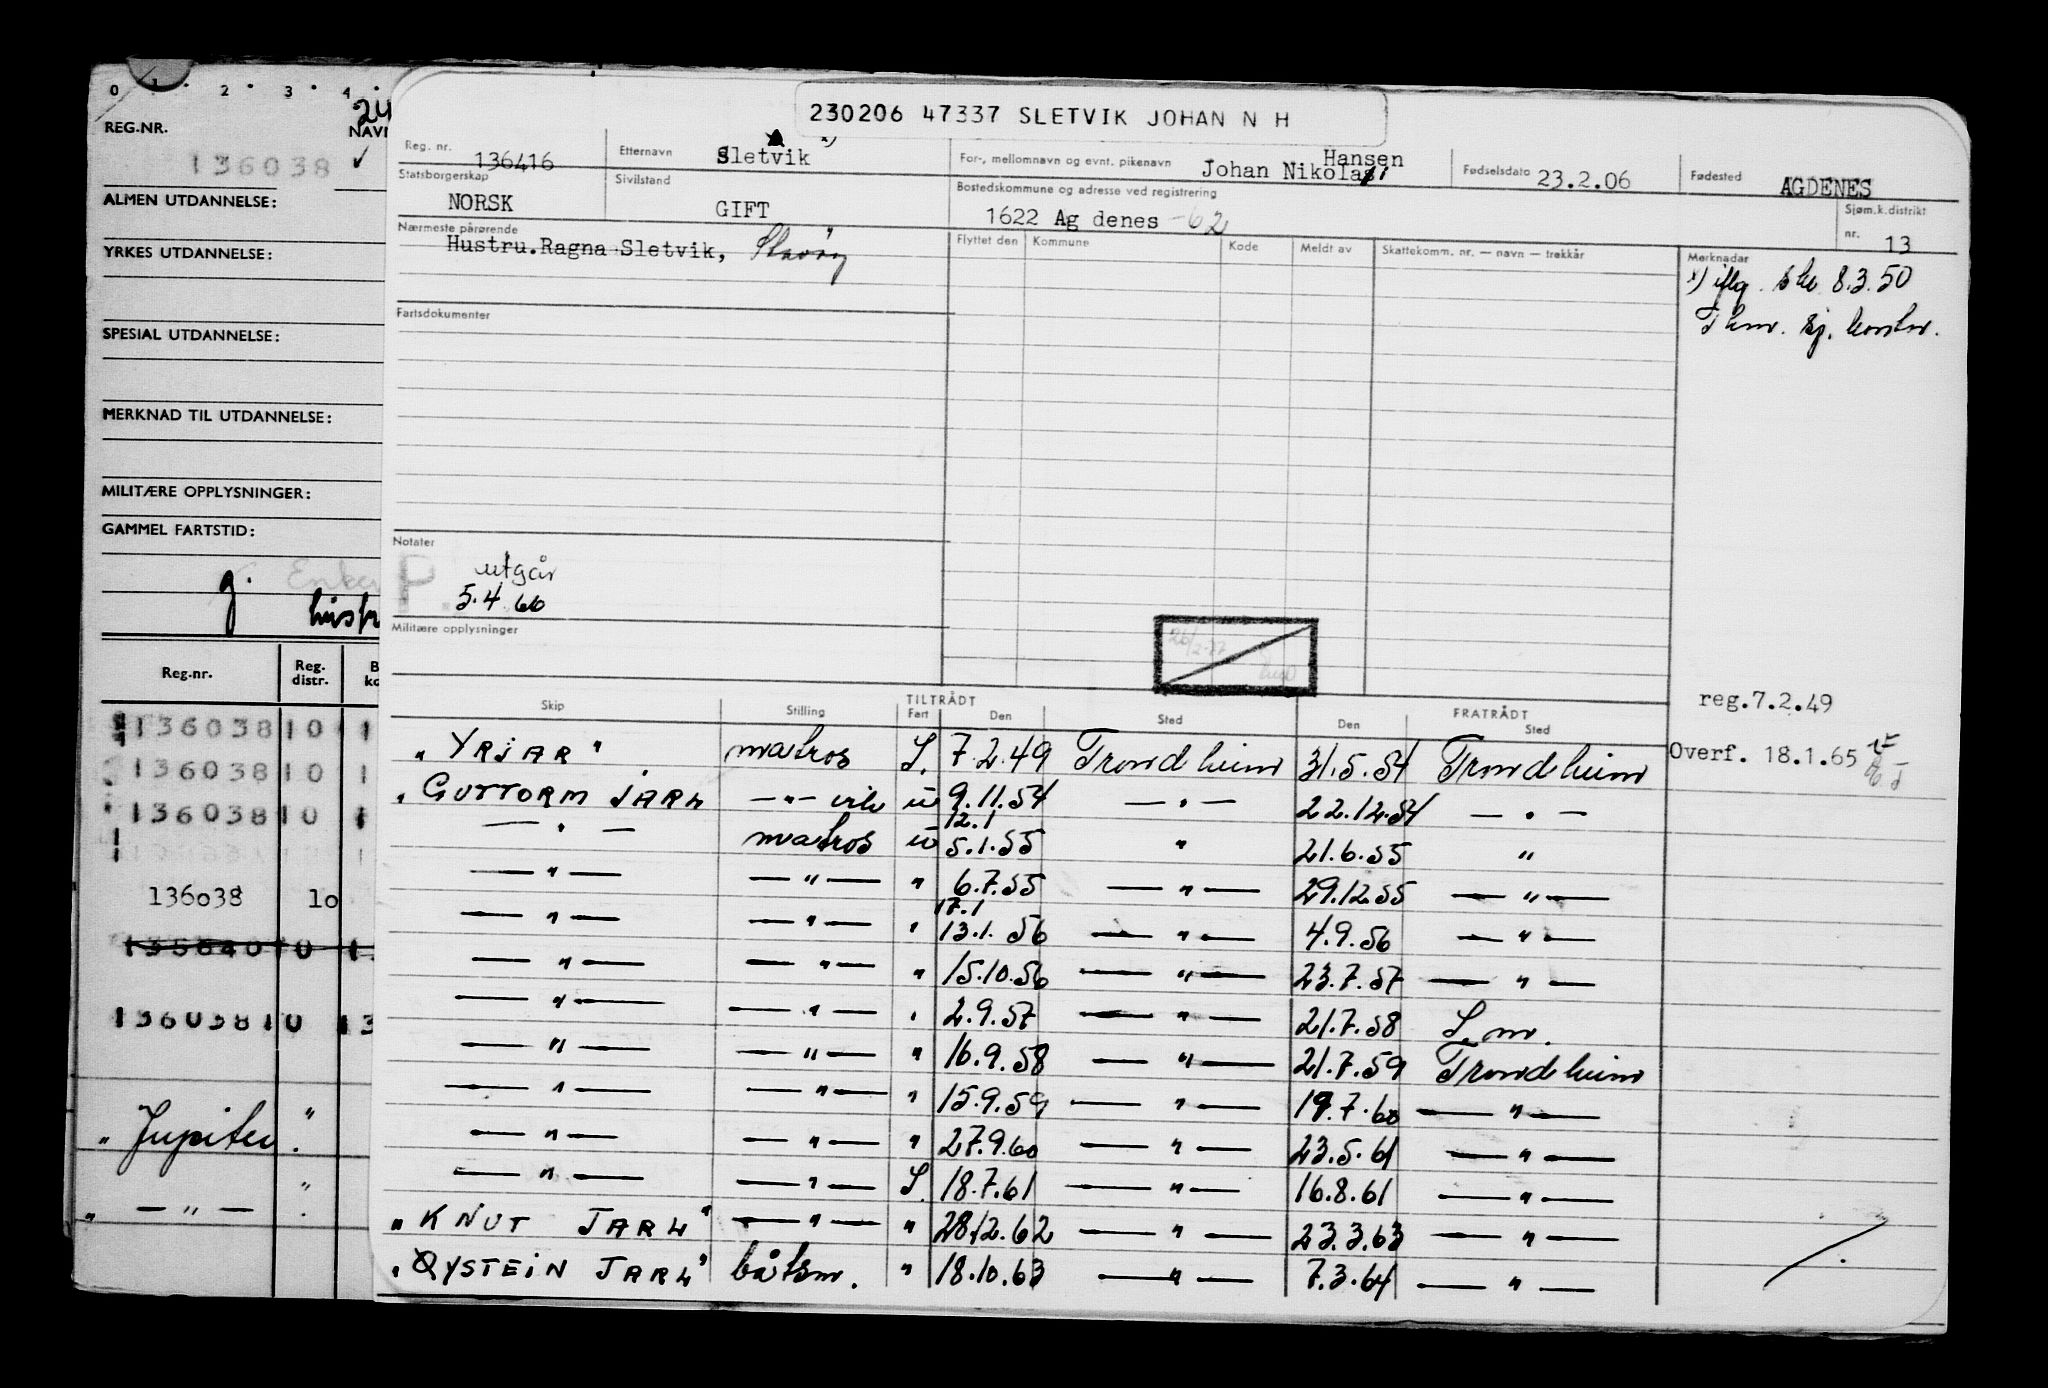 0 1 2 3 4
REG.NR.
136038 ✓
ALMEN UTDANNELSE:
YRKES UTDANNELSE:
SPESIAL UTDANNELSE:
MERKNAD TIL UTDANNELSE:
MILITÆRE OPPLYSNINGER:
GAMMEL FARTSTID:
g.
Reg.nr. Reg. distr.
136038 10 1
136038 10 1
136038 10 1
136038 1o
10
136038 10 13
" Jupiter "
" — " — "
230206 47337 SLETVIK JOHAN N H
Reg. nr. 136416 Etternavn Sletvik x) For-, mellomnavn og evnt. pikenavn Johan Nikolai Hansen Fødselsdato 23.2.06 Fødested AGDENES
Statsborgerskap NORSK Sivilstand GIFT Bostedskommune og adresse ved registrering 1622 Ag denes -62 Sjøm.k.distrikt nr. 13
Nærmeste pårørende Hustru.Ragna Sletvik,
Flyttet den Kommune Kode Meldt av Skattekomm. nr. — navn — trekkår Merknader
x) iflg. skr. 8.3.50
Fartsdokumenter
Notater
P. utgår
5.4.66
Militære opplysninger
reg.7.2.49
Overf. 18.1.65
TILTRÅDT FRATRÅDT
Skip Stilling Fart Den Sted Den Sted
"YRJAR" matros S. 7.2.49 Trondheim 31.5.54 Trondheim
"GUTTORM JARL — " — vik u 9.11.54 — " — 22.12.54 — " —
— " — matros u 12.1 5.1.55 " 21.6.55 "
— " — — " — " 6.7.55 — " — 29.12.55 — " —
— " — — " — " 17.1 13.1.56 — " — 4.9.56 — " —
— " — — " — " 15.10.56 — " — 23.7.57 — " —
— " — — " — " 2.9.57 — " — 21.7.58
— " — — " — " 16.9.58 — " — 21.7.59 Trondheim
— " — — " — " 15.9.59 — " — 19.7.60 — " —
— " — — " — " 27.9.60 — " — 23.5.61 — " —
— " — — " — S. 18.7.61 — " — 16.8.61 — " —
"KNUT JARL" — " — " 28.12.62 — " — 23.3.63 — " —
"ØYSTEIN JARL" båtsm. " 18.10.63 — " — 7.3.64 — " —